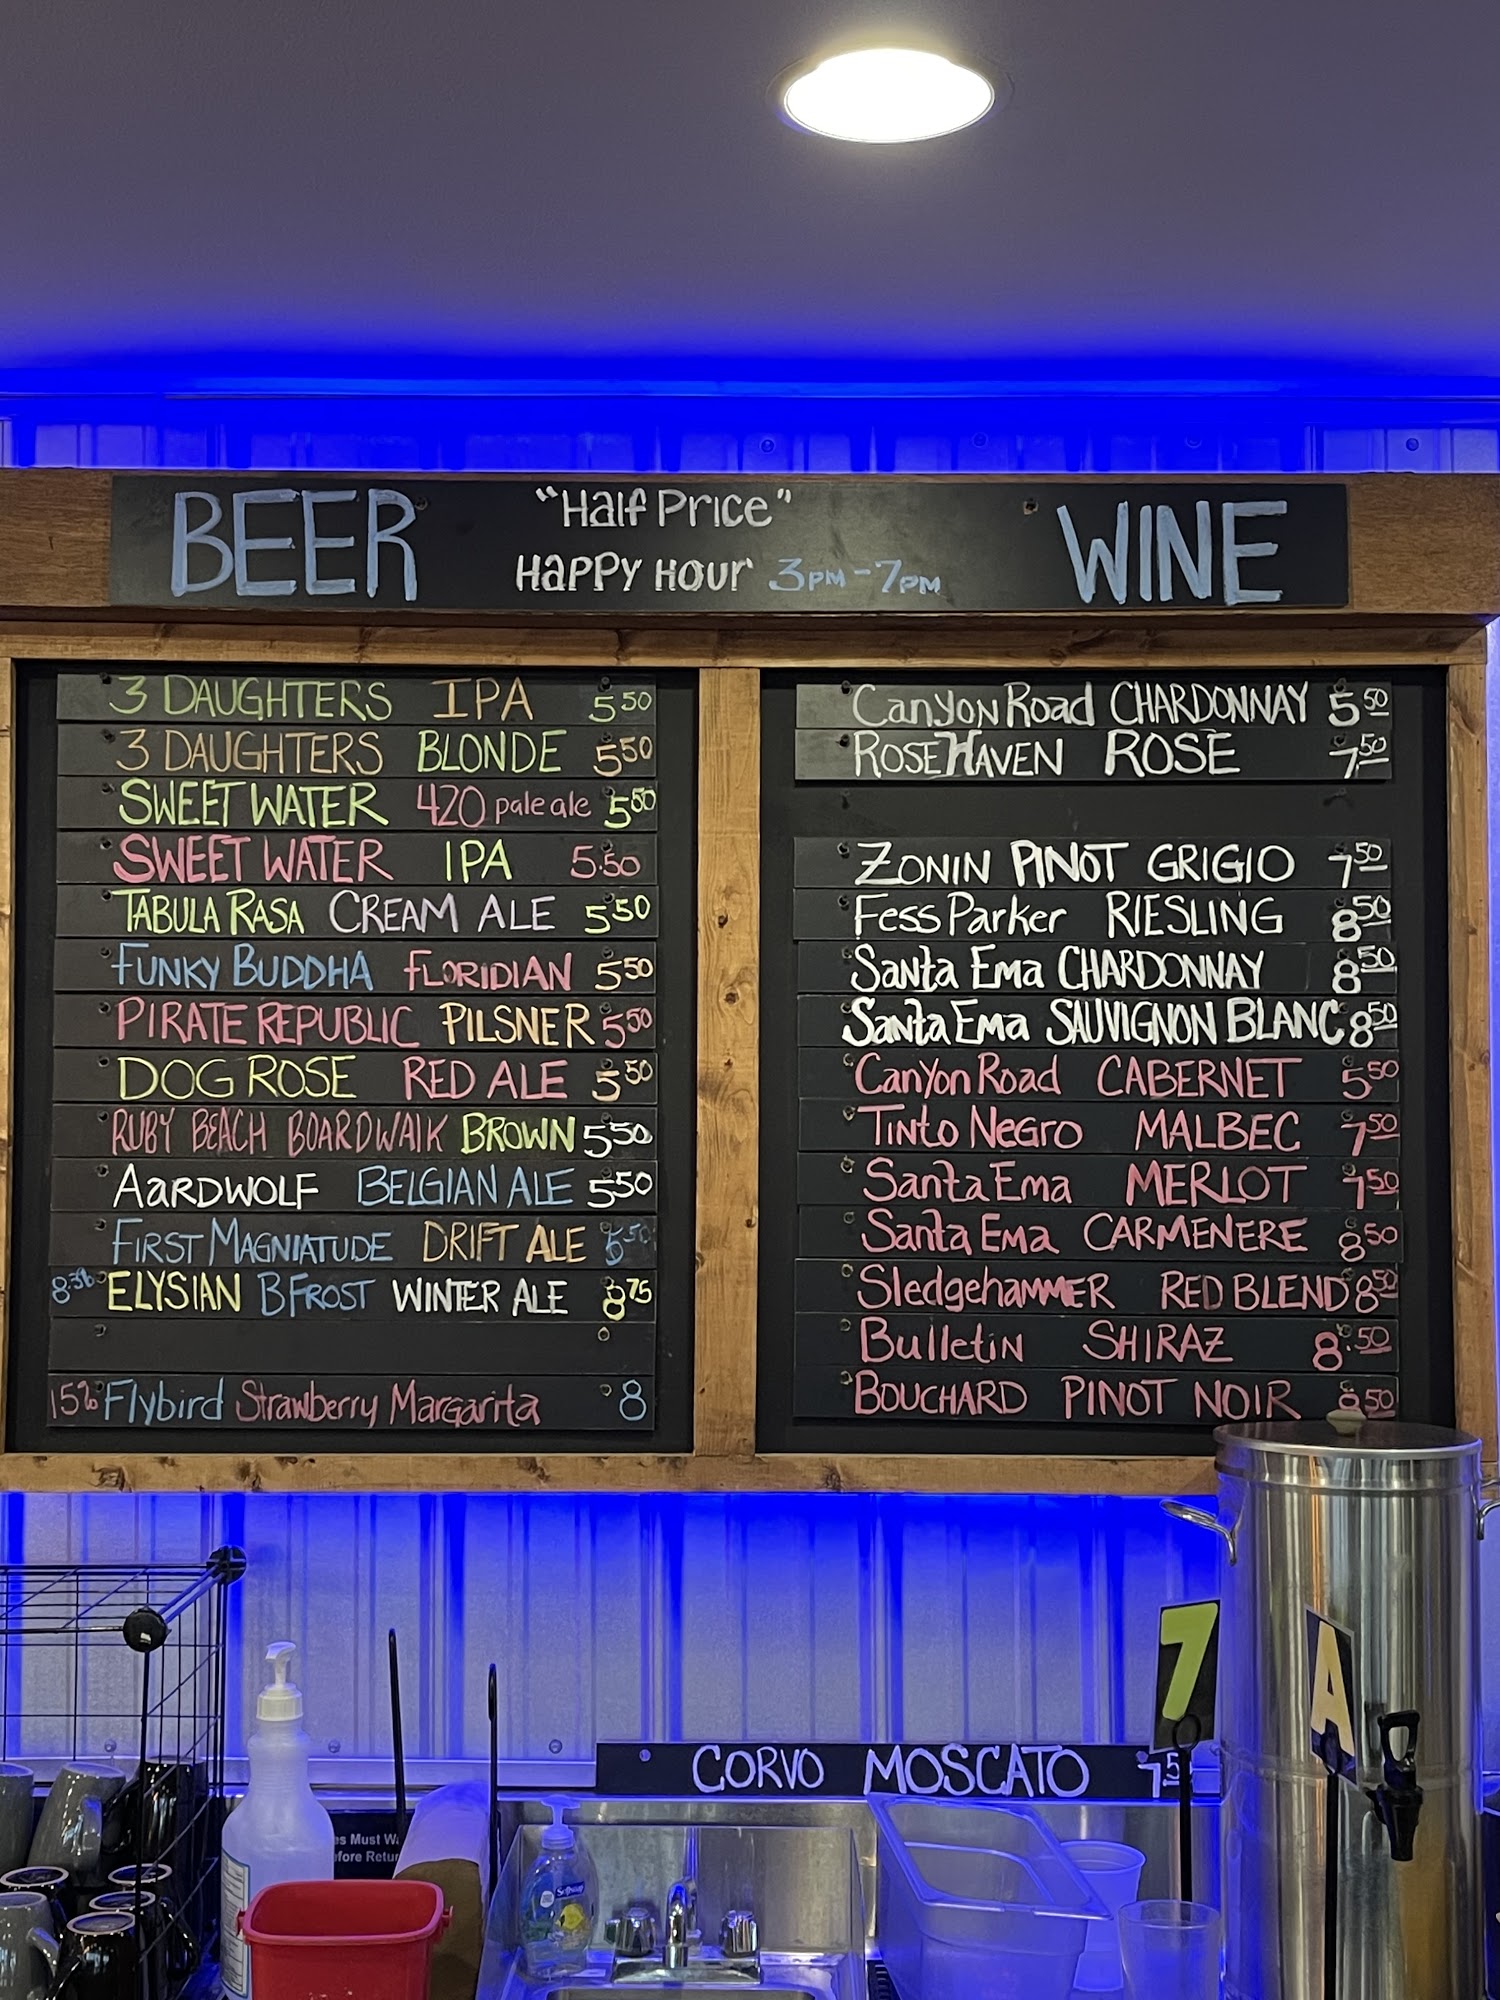 BEER
"Half Price"
HAPPY HOUR 3PM-7PM
WINE
3 DAUGHTERS IPA 5 50
3 DAUGHTERS BLONDE 5 50
SWEET WATER 420 pale ale 5 50
SWEET WATER IPA 5.50
TABULA RASA CREAM ALE 5 50
FUNKY BUDDHA FLORIDIAN 5 50
PIRATE REPUBLIC PILSNER 5 50
DOG ROSE RED ALE 5 50
RUBY BEACH BOARDWALK BROWN 5 50
AARDWOLF BELGIAN ALE 5 50
FIRST MAGNIATUDE DRIFT ALE
ELYSIAN BFROST WINTER ALE 8 75
15% Flybird Strawberry Margarita 8
Canyon Road CHARDONNAY 5 50
ROSEHAVEN ROSE 7 50
ZONIN PINOT GRIGIO 7 50
Fess Parker RIESLING 8 50
Santa Ema CHARDONNAY 8 50
Santa Ema SAUVIGNON BLANC 8 50
Canyon Road CABERNET 5 50
Tinto Negro MALBEC 7 50
Santa Ema MERLOT 7 50
Santa Ema CARMENERE 8 50
SledgehammER RED BLEND 8 50
Bulletin SHIRAZ 8.50
BOUCHARD PINOT NOIR 8 50
7
A
CORVO MOSCATO
es Must
efore Retur
Softsoap